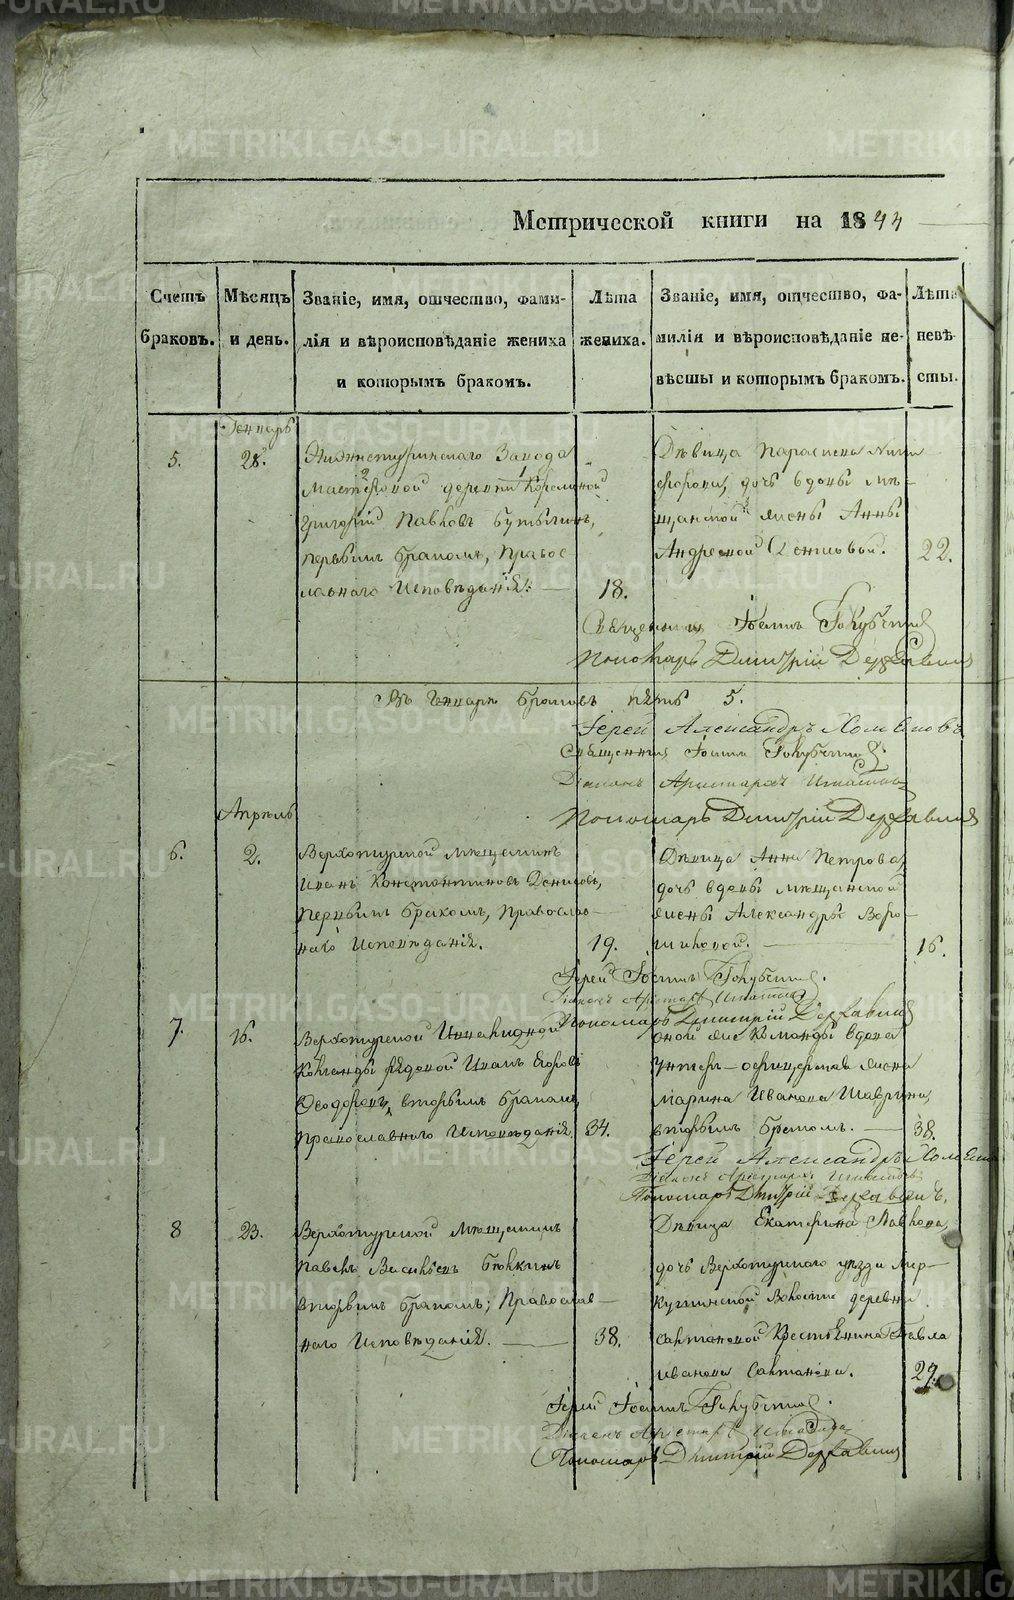 METRIKI.GASO-URAL.RU
Метрической книги на 1844
Счетъ браковъ.
Мѣсяцъ и день.
Званіе, имя, отчество, фамилія и вѣроисповѣданіе жениха и которымъ бракомъ.
Лѣта жениха.
Званіе, имя, отчество, фамилія и вѣроисповѣданіе невѣсты и которымъ бракомъ.
Лѣта невѣсты.
Генварь
5.
28.
Нижнетуринскаго Завода
Мастеровой деревни
Григорій Павловъ
первымъ бракомъ, Правос
лавнаго Исповѣданія.
18.
Дѣвица Параскева Ники
форова, дочь вдовы мѣ-
щанской жены Анны
Андреевой Денисовой.
22.
Священникъ Іоаннъ
Пономарь Димитрій Державинъ
Въ Генварѣ браковъ пять 5.
Іерей Александръ
Священникъ Іоаннъ
Діаконъ Аристархъ
Пономарь Димитрій Державинъ
Апрѣль
6.
2.
Верхотурской мѣщанинъ
Иванъ Константиновъ Денисовъ,
первымъ бракомъ, Православ-
наго Исповѣданія.
19.
Дѣвица Анна Петрова,
дочь вдовы мѣщанской
жены Александры Воро-
шиловой.
16.
Іерей Іоаннъ
Діаконъ Аристархъ
Пономарь Димитрій Державинъ
7.
16.
Верхотурской Инвалидной
Команды рядовой Иванъ Егоровъ
Ѳеодоровъ, вторымъ бракомъ,
Православнаго Исповѣданія,
34.
оной же Команды вдова
Унтеръ-офицерская жена
Марина Иванова
вторымъ бракомъ.
38.
Іерей Александръ
Діаконъ Аристархъ
Пономарь Димитрій Державинъ.
8
23.
Верхотурской Мѣщанинъ
Павелъ Васильевъ
вторымъ бракомъ; Православ-
наго Исповѣданія.
38.
Дѣвица Екатерина Павлова,
дочь Верхотурскаго уѣзда Мер-
кушинской Волости деревни
Салтановой Крестьянина Павла
Иванова Салтанова.
29.
Іерей Іоаннъ
Діаконъ Аристархъ
Пономарь Димитрій Державинъ